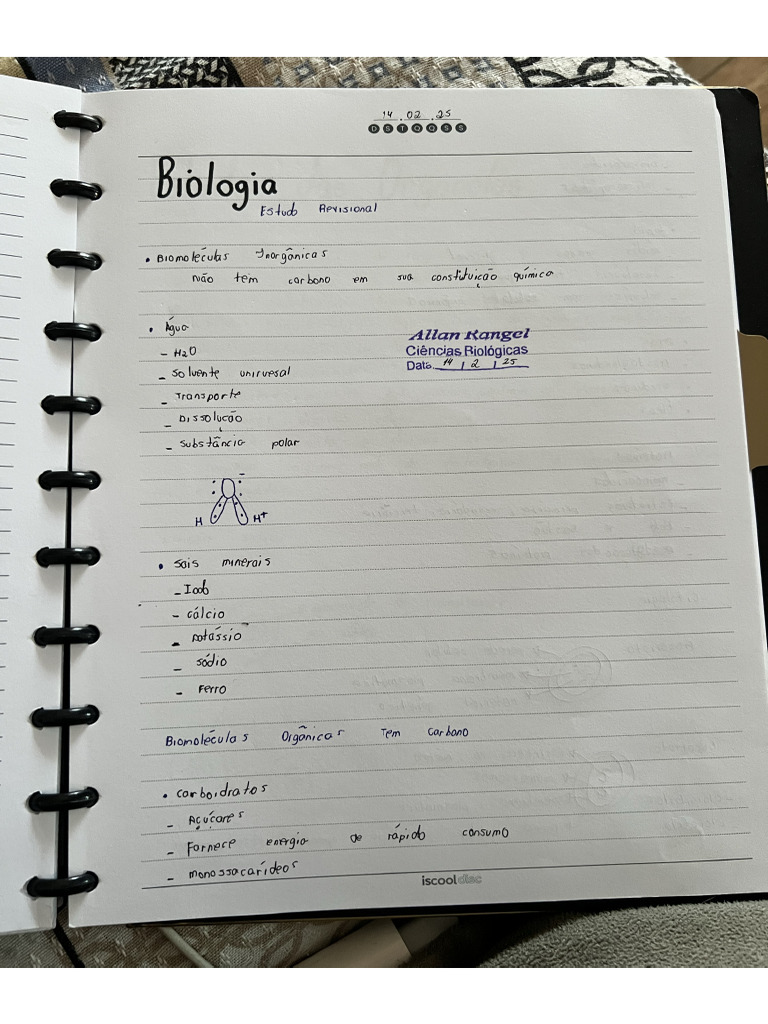 14.02.25
D S T Q Q S S
Biologia
Estudo Revisional
• Biomoléculas Inorgânicas
Não tem carbono em sua constituição química
• Água
- H2O
- Solvente universal
- Transporte
- Dissolução
- Substância polar
Allan Rangel
Ciências Biológicas
Data 14 / 2 / 25
H H+
• Sais minerais
- Iodo
- Cálcio
- Potássio
- Sódio
- Ferro
Biomoléculas Orgânicas Tem Carbono
• Carboidratos
- Açúcares
- Fornece energia de rápido consumo
- monossacarídeos
iscool disc